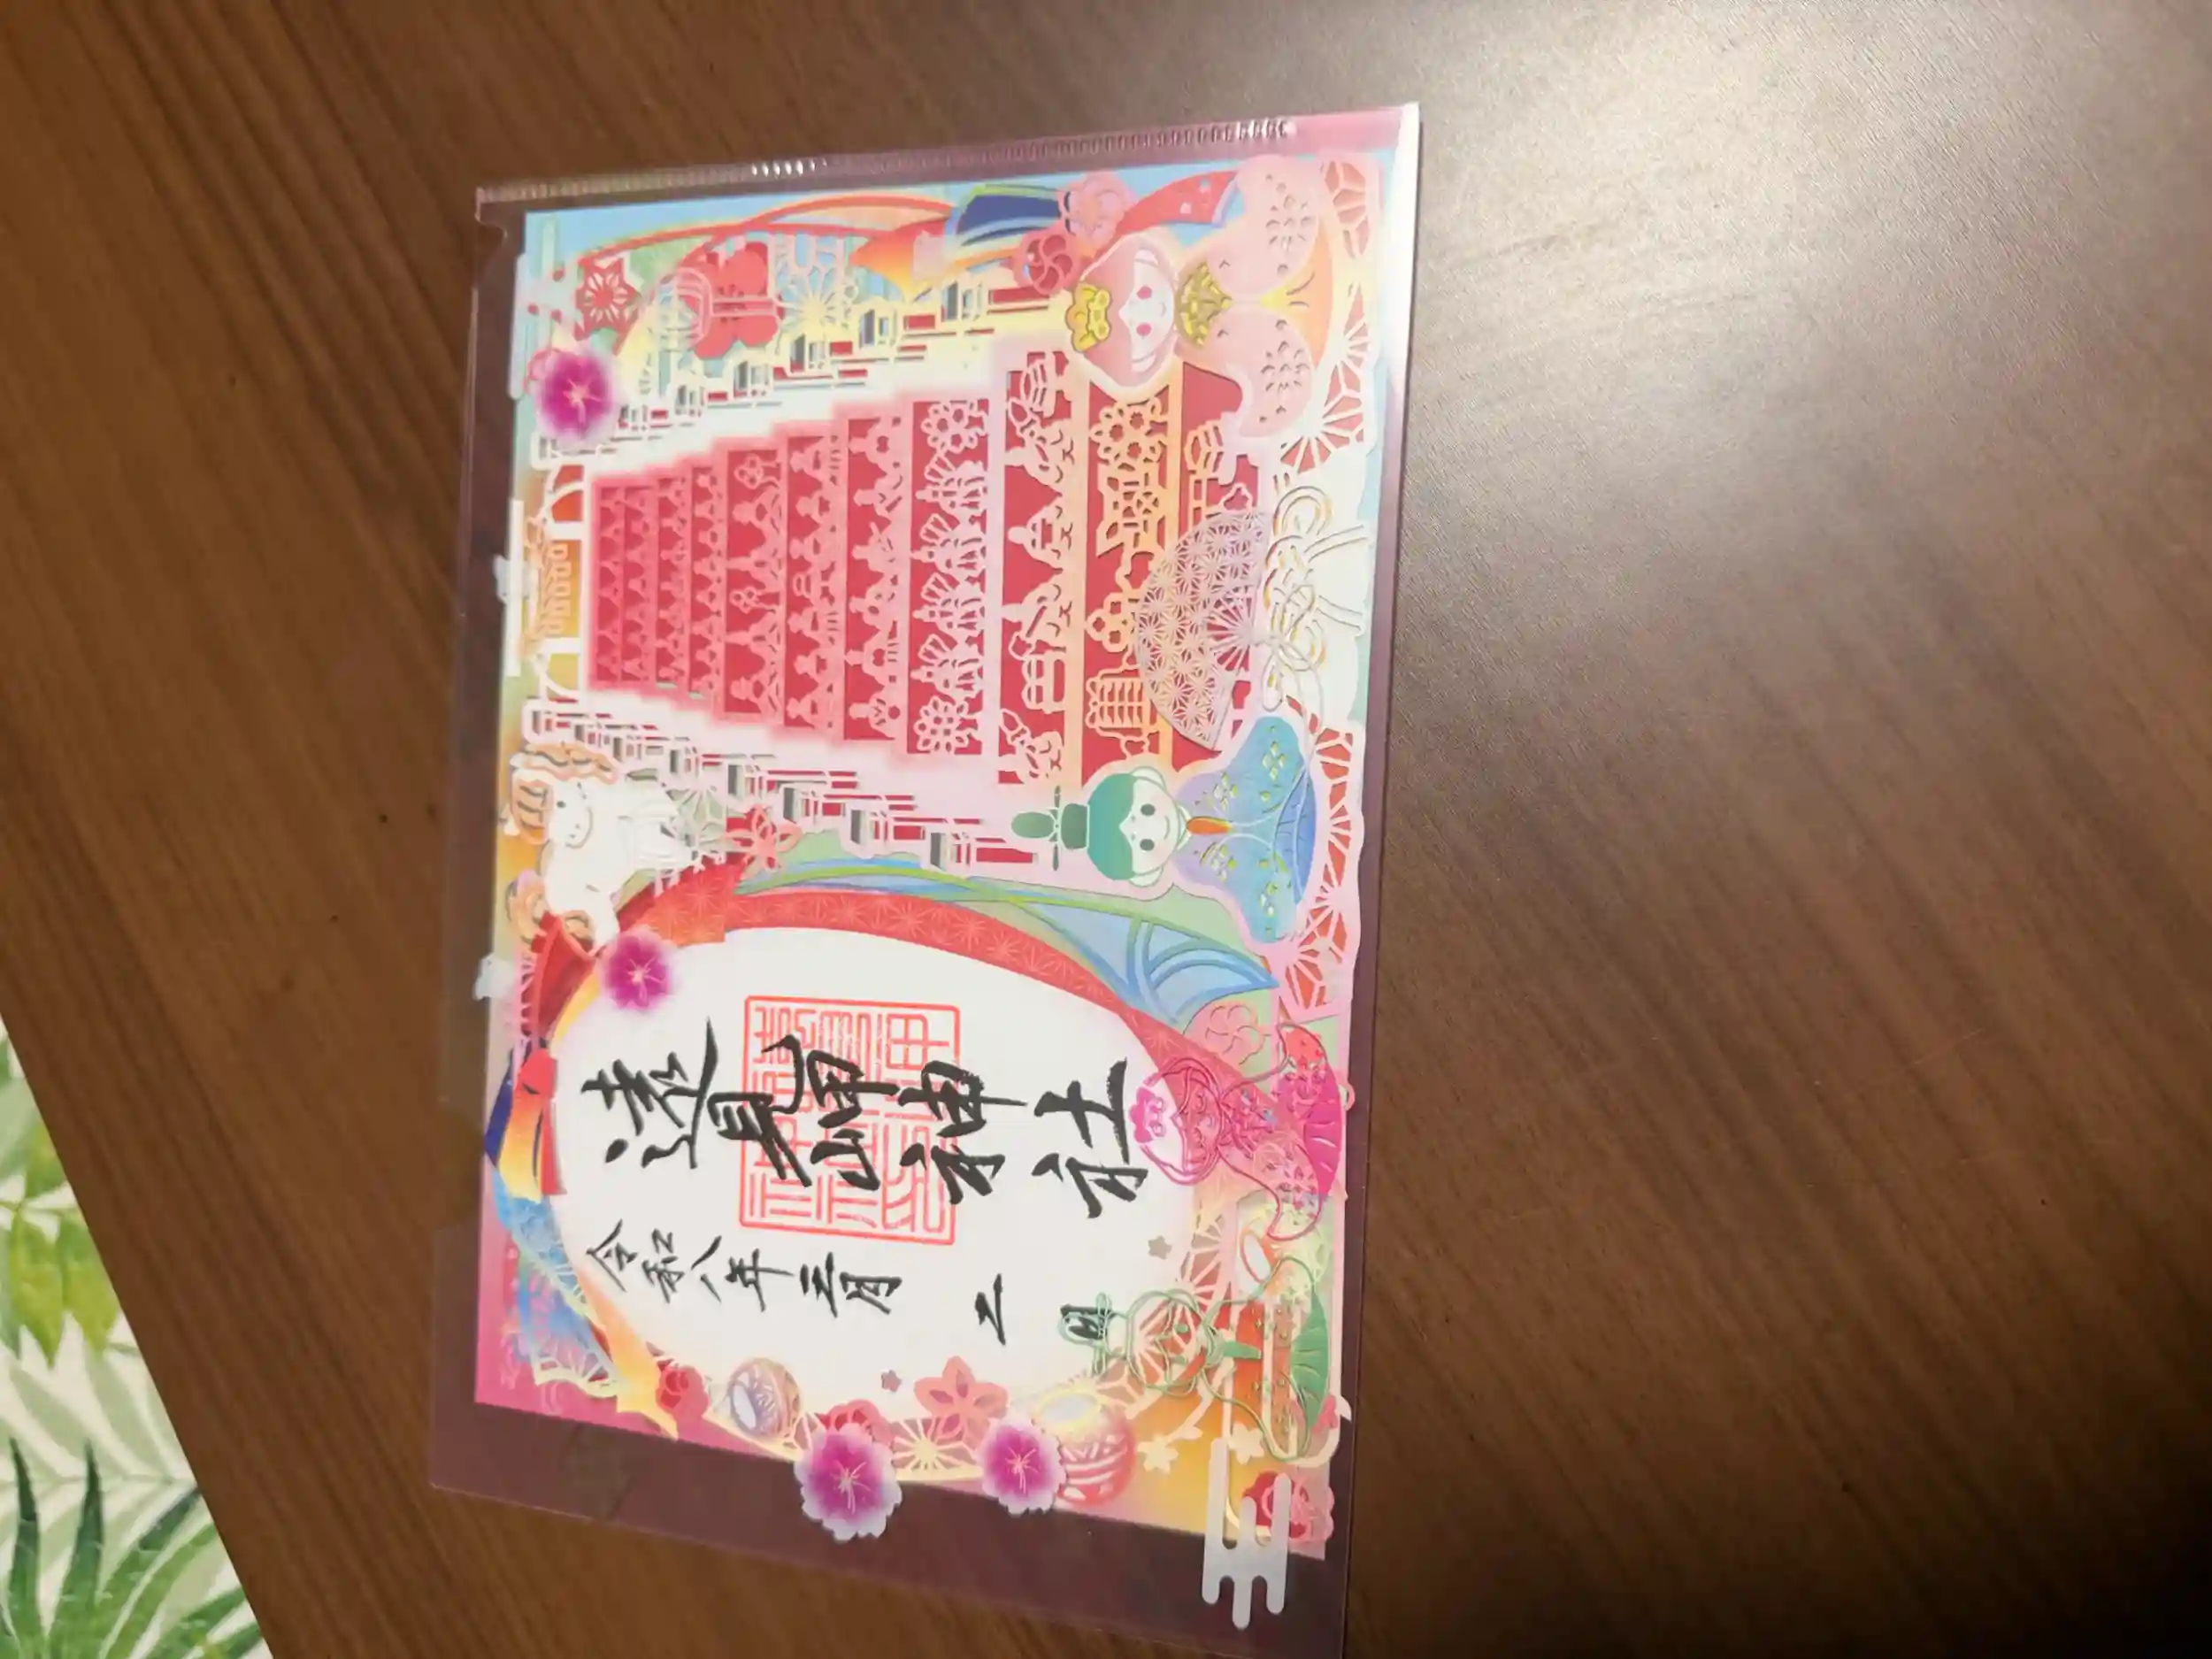 遠見岬神社
令和八年三月二日